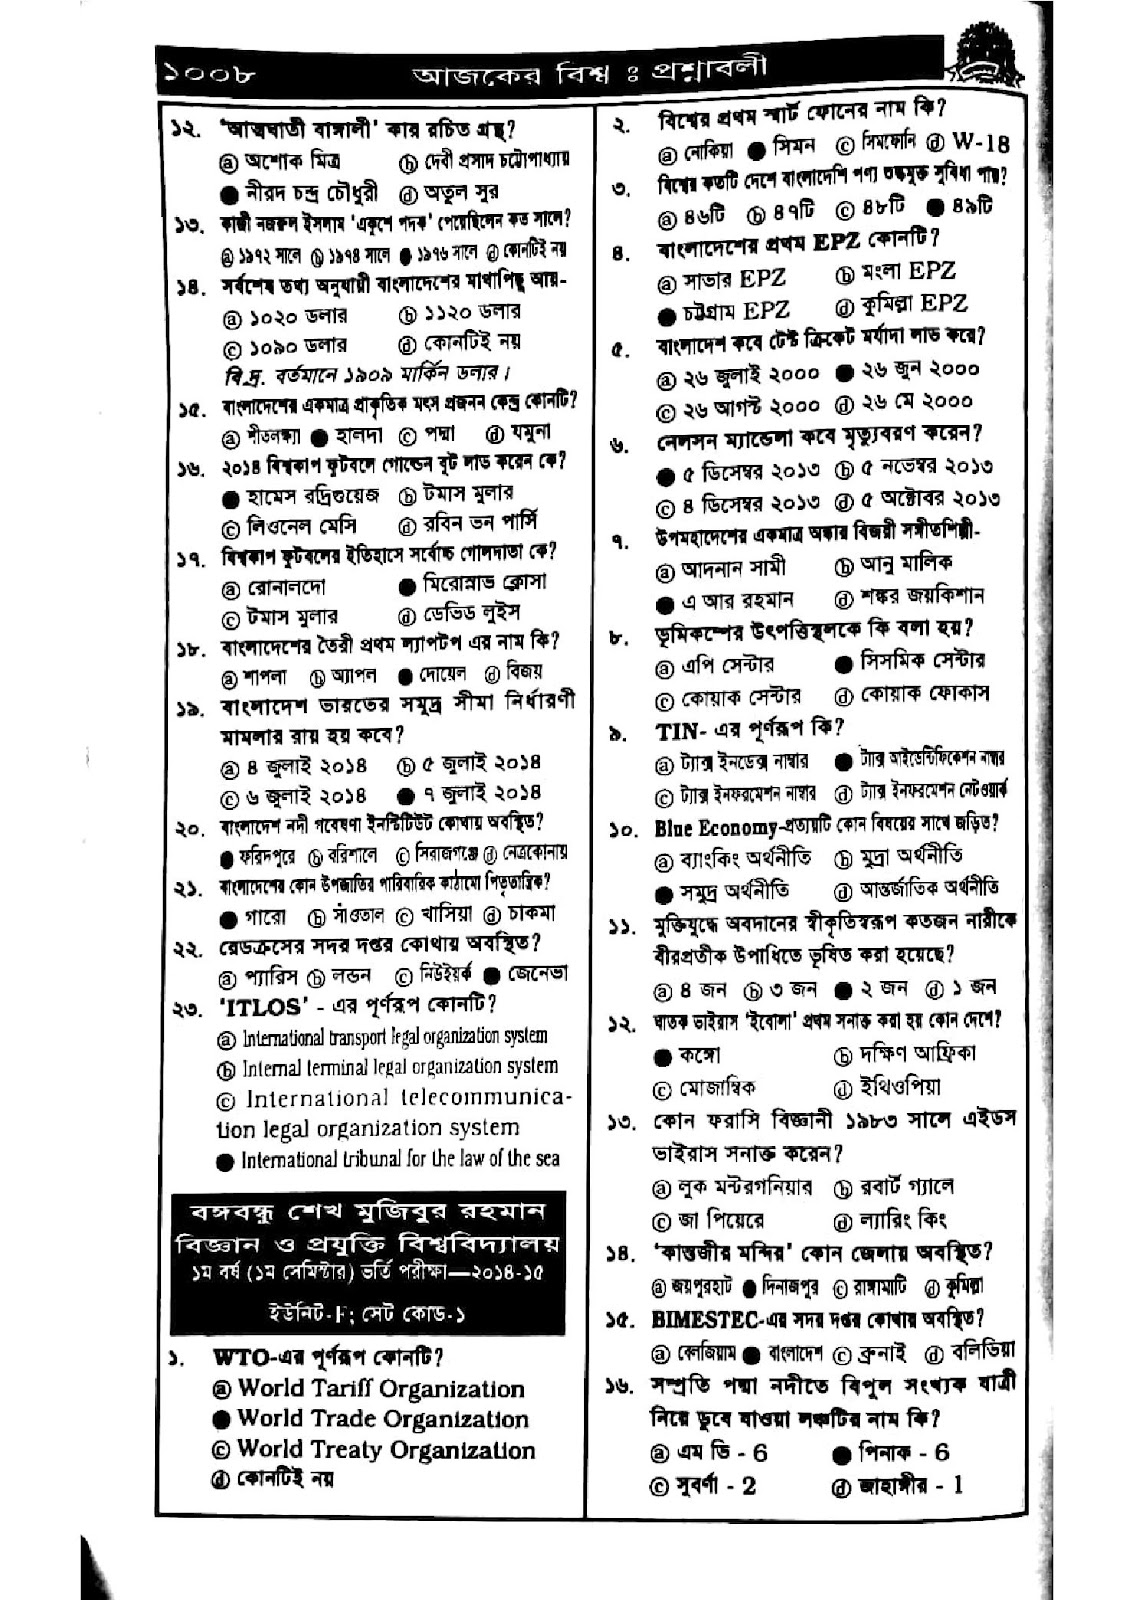 ১০০৮
আজকের বিশ্ব ঃ প্রশ্নাবলী
১২. 'আত্মঘাতী বাঙ্গালী' কার রচিত গ্রন্থ?
ⓐ অশোক মিত্র ⓑ দেবী প্রসাদ চট্টোপাধ্যায়
● নীরদ চন্দ্র চৌধুরী ⓓ অতুল সুর
১৩. কাজী নজরুল ইসলাম 'একুশে পদক' পেয়েছিলেন কত সালে?
ⓐ ১৯৭২ সালে ⓑ ১৯৭৪ সালে ● ১৯৭৬ সালে ⓓ কোনটিই নয়
১৪. সর্বশেষ তথ্য অনুযায়ী বাংলাদেশের মাথাপিছু আয়-
ⓐ ১০২০ ডলার ⓑ ১১২০ ডলার
ⓒ ১০৯০ ডলার ⓓ কোনটিই নয়
বি.দ্র. বর্তমানে ১৯০৯ মার্কিন ডলার।
১৫. বাংলাদেশের একমাত্র প্রাকৃতিক মৎস প্রজনন কেন্দ্র কোনটি?
ⓐ শীতলক্ষ্যা ● হালদা ⓒ পদ্মা ⓓ যমুনা
১৬. ২০১৪ বিশ্বকাপ ফুটবলে গোল্ডেন বুট লাভ করেন কে?
● হামেস রদ্রিগুয়েজ ⓑ টমাস মুলার
ⓒ লিওনেল মেসি ⓓ রবিন ভন পার্সি
১৭. বিশ্বকাপ ফুটবলের ইতিহাসে সর্বোচ্চ গোলদাতা কে?
ⓐ রোনালদো ● মিরোস্লাভ ক্লোসা
ⓒ টমাস মুলার ⓓ ডেভিড লুইস
১৮. বাংলাদেশের তৈরী প্রথম ল্যাপটপ এর নাম কি?
ⓐ শাপলা ⓑ অ্যাপল ● দোয়েল ⓓ বিজয়
১৯. বাংলাদেশ ভারতের সমুদ্র সীমা নির্ধারণী
মামলার রায় হয় কবে?
ⓐ ৪ জুলাই ২০১৪ ⓑ ৫ জুলাই ২০১৪
ⓒ ৬ জুলাই ২০১৪ ● ৭ জুলাই ২০১৪
২০. বাংলাদেশ নদী গবেষণা ইনস্টিটিউট কোথায় অবস্থিত?
● ফরিদপুরে ⓑ বরিশালে ⓒ সিরাজগঞ্জে ⓓ নেত্রকোনায়
২১. বাংলাদেশের কোন উপজাতির পারিবারিক কাঠামো পিতৃতান্ত্রিক?
● গারো ⓑ সাঁওতাল ⓒ খাসিয়া ⓓ চাকমা
২২. রেডক্রসের সদর দপ্তর কোথায় অবস্থিত?
ⓐ প্যারিস ⓑ লন্ডন ⓒ নিউইয়র্ক ● জেনেভা
২৩. 'ITLOS' - এর পূর্ণরূপ কোনটি?
ⓐ International transport legal organization system
ⓑ Internal terminal legal organization system
ⓒ International telecommunica-
tion legal organization system
● International tribunal for the law of the sea
বঙ্গবন্ধু শেখ মুজিবুর রহমান
বিজ্ঞান ও প্রযুক্তি বিশ্ববিদ্যালয়
১ম বর্ষ (১ম সেমিস্টার) ভর্তি পরীক্ষা—২০১৪-১৫
ইউনিট-F; সেট কোড-১
১. WTO-এর পূর্ণরূপ কোনটি?
ⓐ World Tariff Organization
● World Trade Organization
ⓒ World Treaty Organization
ⓓ কোনটিই নয়
২. বিশ্বের প্রথম স্মার্ট ফোনের নাম কি?
ⓐ নোকিয়া ● সিমন ⓒ সিমফোনি ⓓ W-18
৩. বিশ্বের কতটি দেশে বাংলাদেশি পণ্য শুল্কমুক্ত সুবিধা পায়?
ⓐ ৪৬টি ⓑ ৪৭টি ⓒ ৪৮টি ● ৪৯টি
৪. বাংলাদেশের প্রথম EPZ কোনটি?
ⓐ সাভার EPZ ⓑ মংলা EPZ
● চট্টগ্রাম EPZ ⓓ কুমিল্লা EPZ
৫. বাংলাদেশ কবে টেস্ট ক্রিকেট মর্যাদা লাভ করে?
ⓐ ২৬ জুলাই ২০০০ ● ২৬ জুন ২০০০
ⓒ ২৬ আগস্ট ২০০০ ⓓ ২৬ মে ২০০০
৬. নেলসন ম্যান্ডেলা কবে মৃত্যুবরণ করেন?
● ৫ ডিসেম্বর ২০১৩ ⓑ ৫ নভেম্বর ২০১৩
ⓒ ৪ ডিসেম্বর ২০১৩ ⓓ ৫ অক্টোবর ২০১৩
৭. উপমহাদেশের একমাত্র অস্কার বিজয়ী সঙ্গীতশিল্পী-
ⓐ আদনান সামী ⓑ আনু মালিক
● এ আর রহমান ⓓ শঙ্কর জয়কিশান
৮. ভূমিকম্পের উৎপত্তিস্থলকে কি বলা হয়?
ⓐ এপি সেন্টার ● সিসমিক সেন্টার
ⓒ কোয়াক সেন্টার ⓓ কোয়াক ফোকাস
৯. TIN- এর পূর্ণরূপ কি?
ⓐ ট্যাক্স ইনডেক্স নাম্বার ● ট্যাক্স আইডেন্টিফিকেশন নাম্বার
ⓒ ট্যাক্স ইনফরমেশন নাম্বার ⓓ ট্যাক্স ইনফরমেশন নেটওয়ার্ক
১০. Blue Economy-প্রত্যয়টি কোন বিষয়ের সাথে জড়িত?
ⓐ ব্যাংকিং অর্থনীতি ⓑ মুদ্রা অর্থনীতি
● সমুদ্র অর্থনীতি ⓓ আন্তর্জাতিক অর্থনীতি
১১. মুক্তিযুদ্ধে অবদানের স্বীকৃতিস্বরূপ কতজন নারীকে
বীরপ্রতীক উপাধিতে ভূষিত করা হয়েছে?
ⓐ ৪ জন ⓑ ৩ জন ● ২ জন ⓓ ১ জন
১২. ঘাতক ভাইরাস 'ইবোলা' প্রথম সনাক্ত করা হয় কোন দেশে?
● কঙ্গো ⓑ দক্ষিণ আফ্রিকা
ⓒ মোজাম্বিক ⓓ ইথিওপিয়া
১৩. কোন ফরাসি বিজ্ঞানী ১৯৮৩ সালে এইডস
ভাইরাস সনাক্ত করেন?
ⓐ লুক মন্টরগনিয়ার ⓑ রবার্ট গ্যালে
ⓒ জা পিয়েরে ⓓ ল্যারিং কিং
১৪. 'কান্তজীর মন্দির' কোন জেলায় অবস্থিত?
ⓐ জয়পুরহাট ● দিনাজপুর ⓒ রাঙ্গামাটি ⓓ কুমিল্লা
১৫. BIMESTEC-এর সদর দপ্তর কোথায় অবস্থিত?
ⓐ বেলজিয়াম ● বাংলাদেশ ⓒ ব্রুনাই ⓓ বলিভিয়া
১৬. সম্প্রতি পদ্মা নদীতে বিপুল সংখ্যক যাত্রী
নিয়ে ডুবে যাওয়া লঞ্চটির নাম কি?
ⓐ এম ডি - 6 ● পিনাক - 6
ⓒ সুবর্ণা - 2 ⓓ জাহাঙ্গীর - 1